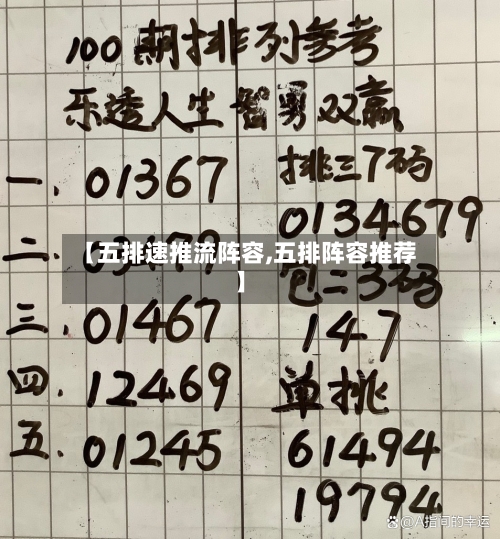 100期排列参考
乐透人生 智勇双赢
一、01367
排三7码
0134679
二、
【五排速推流阵容,五排阵容推荐
】
包二3码
三、01467
147
四、12469
单挑
五、01245
61494
19794
@A指间的幸运